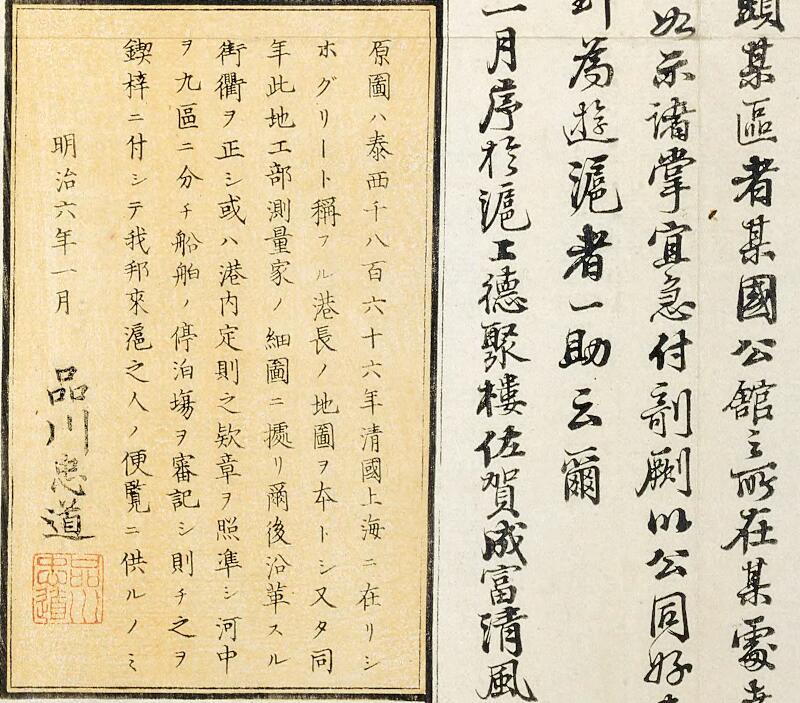 某區者某國公館之所在某處
如示諸掌宜急付剞劂以公同好
為遊滬者一助云爾
一月序於滬上德聚樓佐賀成富清風
原圖ハ泰西千八百六十六年清國上海ニ在リシ
ホグリート稱フル港長ノ地圖ヲ本トシ又タ同
年此地工部測量家ノ細圖ニ據リ爾後沿革スル
街衢ヲ正シ或ハ港内定則之欵章ヲ照準シ河中
ヲ九區ニ分チ船舶ノ停泊塲ヲ審記シ則チ之ヲ
鍥梓ニ付シテ我邦來滬之人ノ便覧ニ供ルノミ
明治六年一月 品川忠道
品川忠道